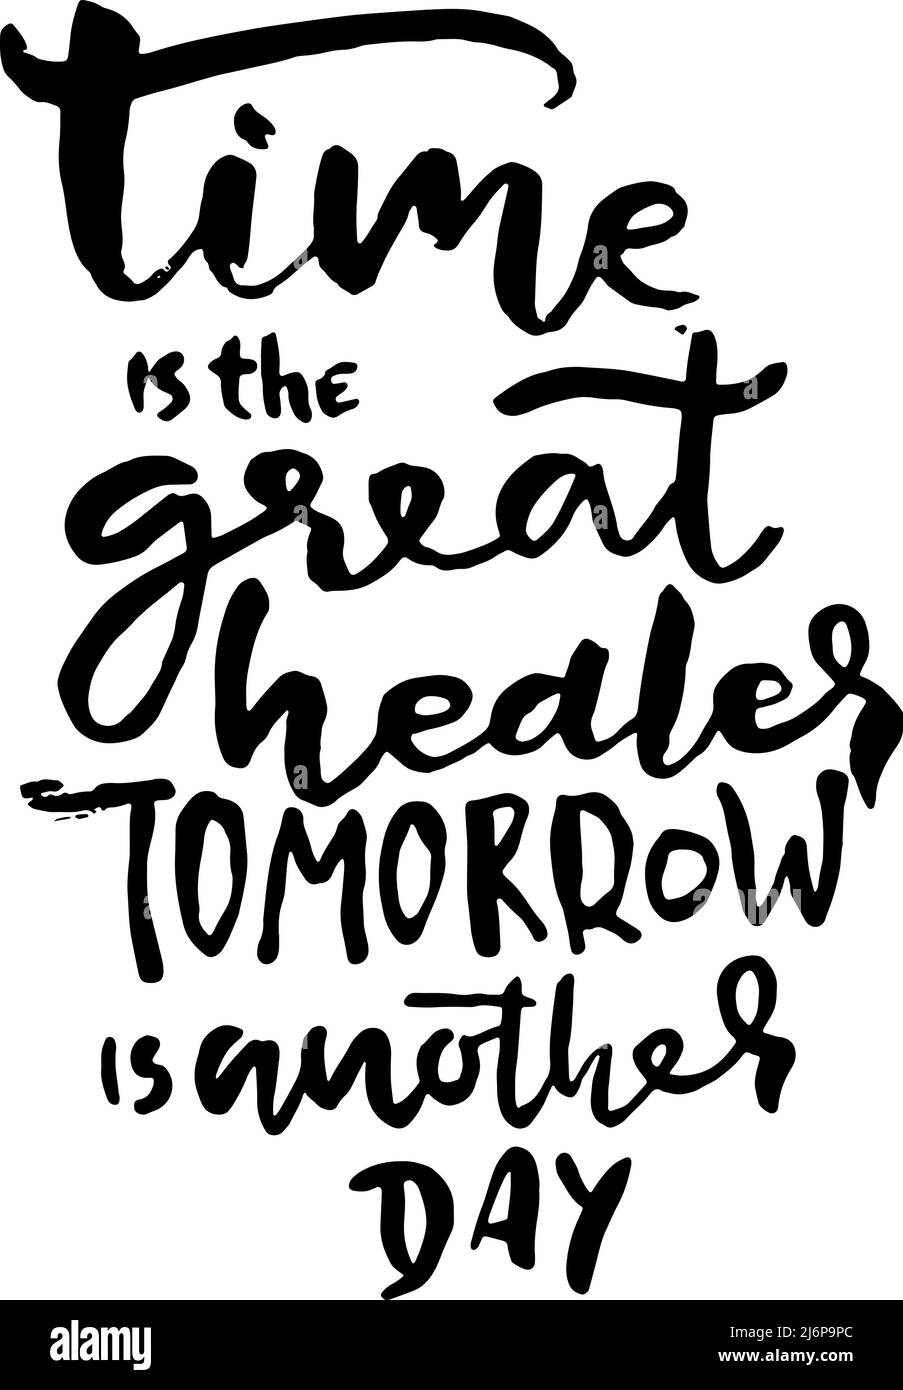 Time
is the
great
healer
TOMORROW
is another
DAY
alamy
Image ID: 2J6P9PC
www.alamy.com